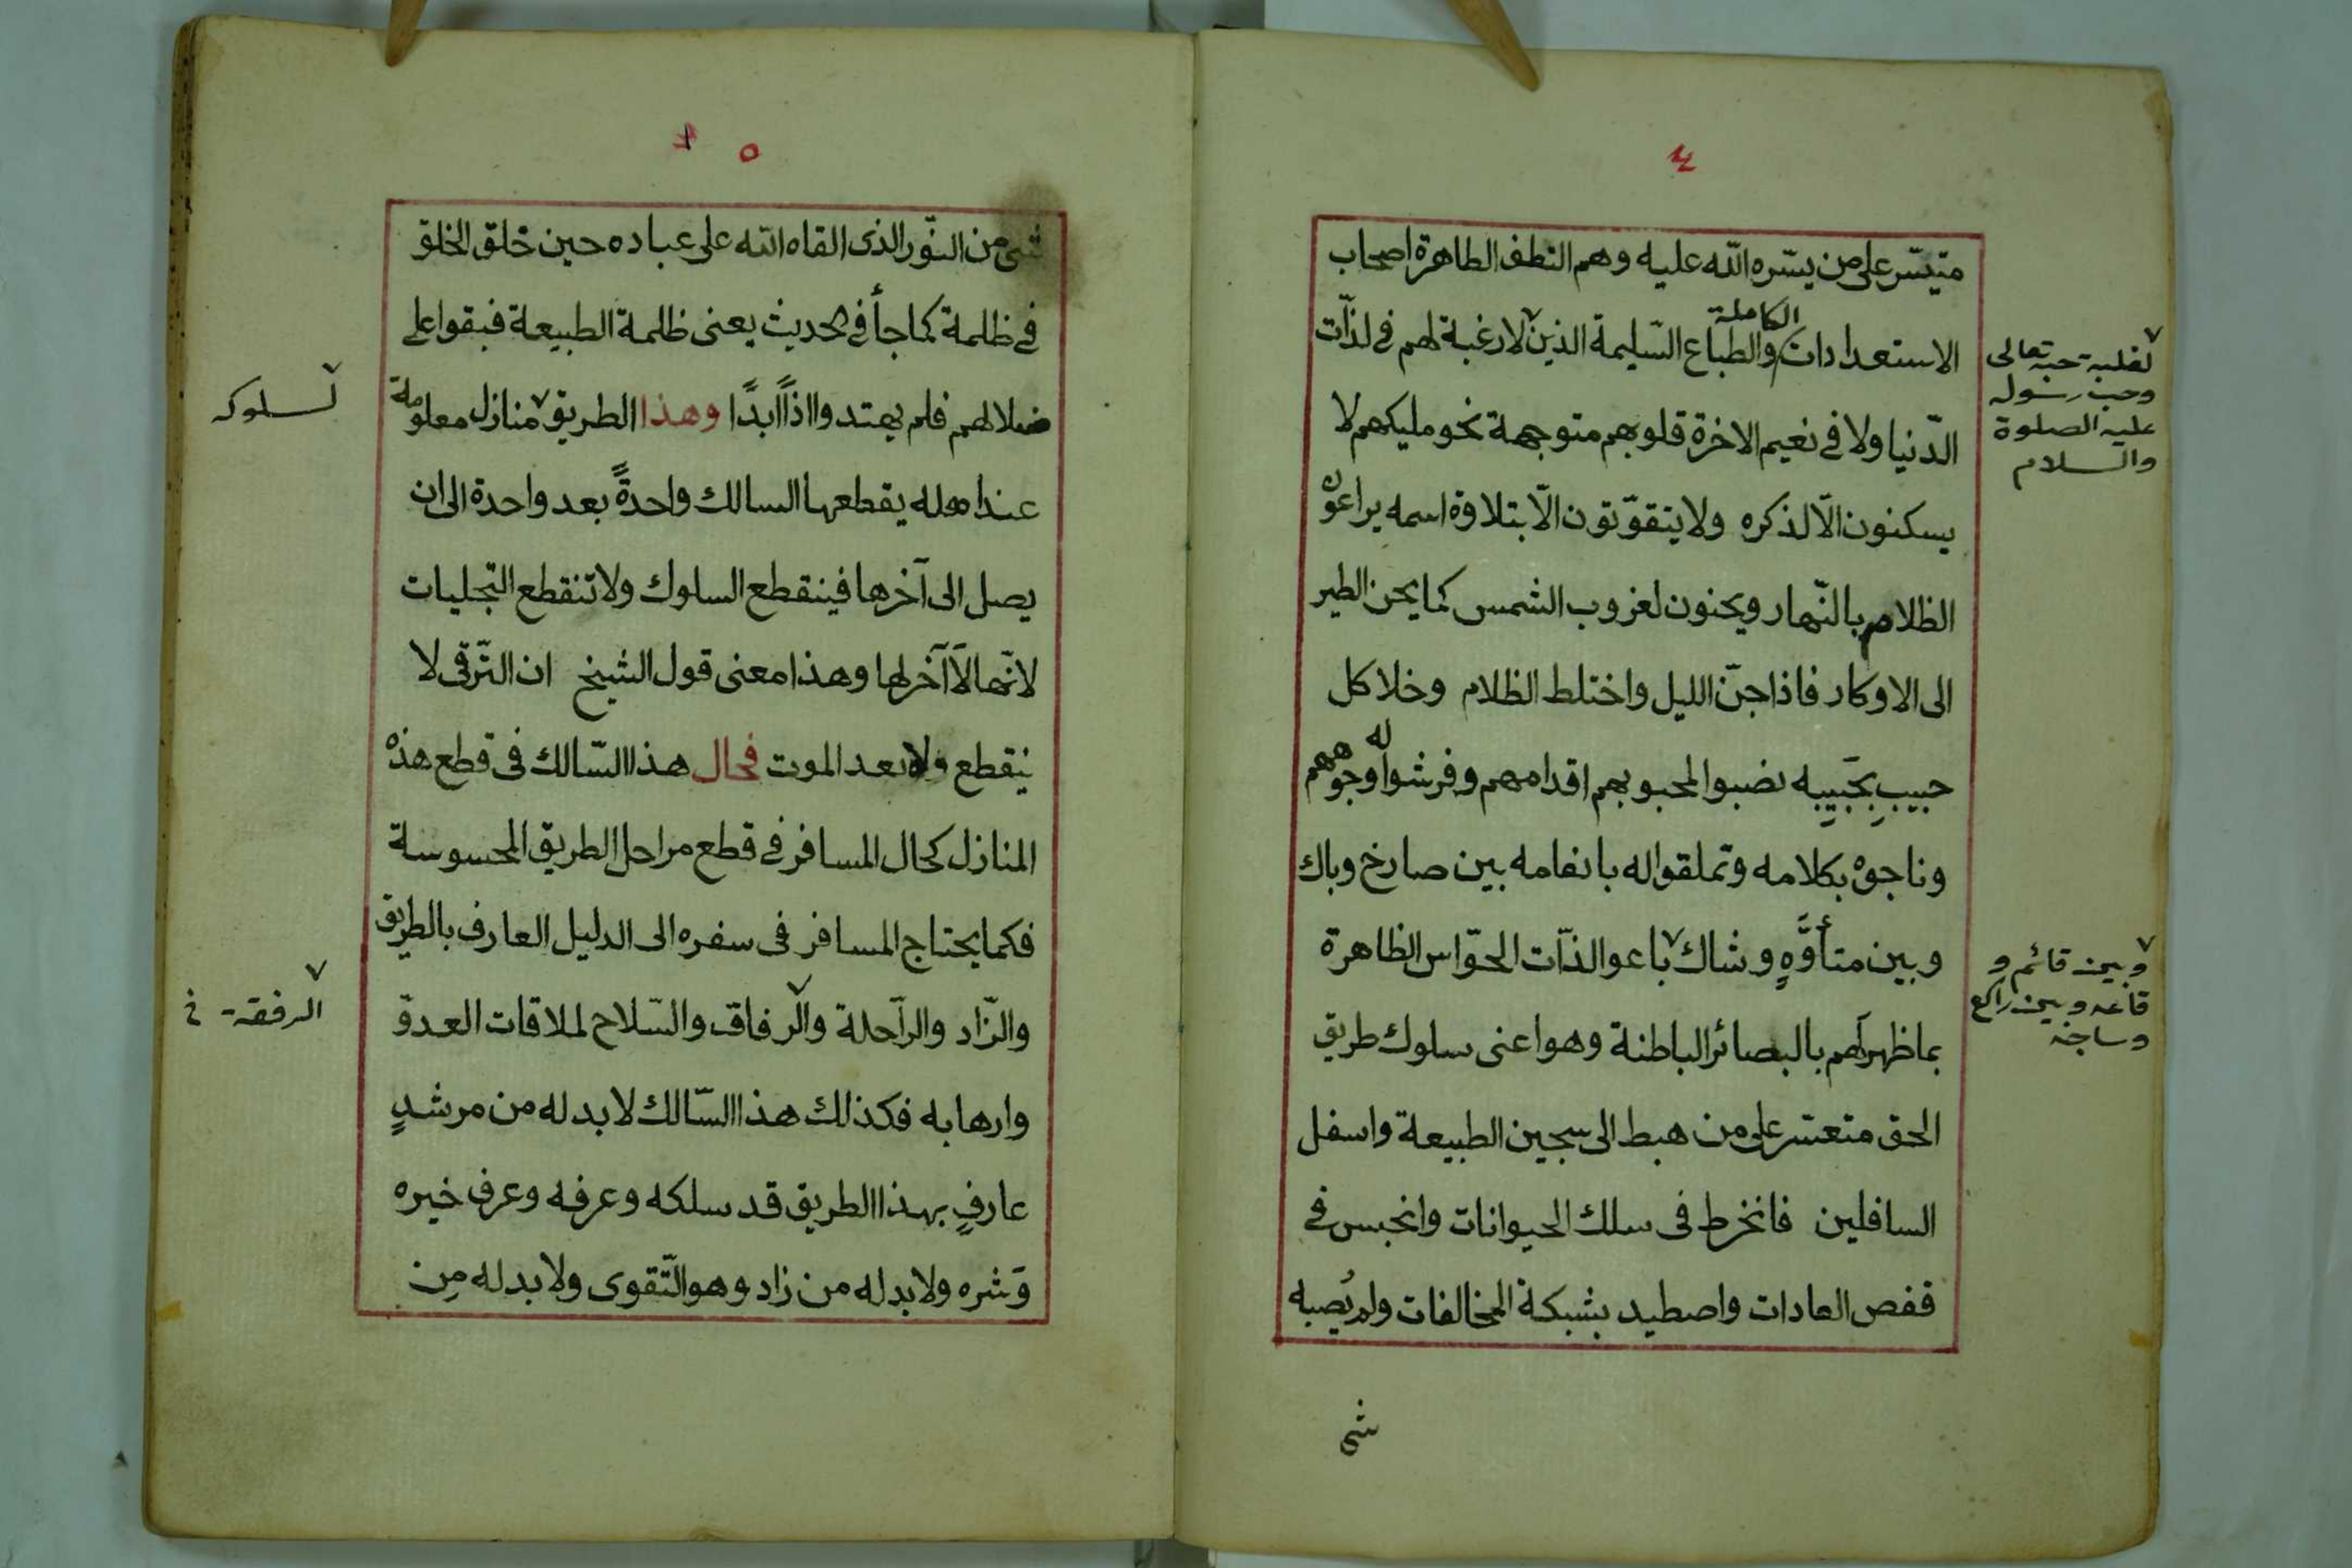 ٤
متيسّر على من يسّره الله عليه وهم النطف الطاهرة اصحاب
الاستعدادات الكاملة والطباع السّليمة الذين لا رغبة لهم في لذّات
الدّنيا ولا في نعيم الاخرة قلوبهم متوجهة نحو مليكهم لا
يسكنون الّا لذكره ولا يتقوّتون الّا بتلاوة اسمه يراعون
الظلام بالنّهار ويحنون لغروب الشمس كما يحن الطير
الى الاوكار فاذا جنّ الليل واختلط الظلام وخلا كل
حبيبٍ بحَبيبِه نصبوا لمحبوبهم اقدامهم وفرشوا له وجوههم
وناجوه بكلامه وتملقوا له بانعامه بين صارخ وباك
وبين متأوّهٍ وشاك باعوا لذّات الحوّاس الظاهرة
بما ظهر لهم بالبصائر الباطنة وهو اعنى سلوك طريق
الحق متعسّر على من هبط الى سجين الطبيعة واسفل
السافلين فانخرط فى سلك الحيوانات وانحبس في
قفص العادات واصطيد بشبكة المخالفات ولم يُصبه
شى
لغلبة حبه تعالى
وحب رسوله
عليه الصلوة
والسلام
وبين قائم و
قاعد وبين راكع
وساجد
٥
شى من النّور الذى القاه الله على عباده حين خلق الخلق
في ظلمة كما جأ في الحديث يعنى ظلمة الطبيعة فبقوا على
ضلالهم فلم يهتدوا اذاً ابدًا وهذا الطريق منازل معلومة
عند اهله يقطعها السالك واحدةً بعد واحدة الى ان
يصل الى آخرها فينقطع السلوك ولا تنقطع التجليات
لانّها لا آخر لها وهذا معنى قول الشيخ ان التّرقى لا
ينقطع ولا بعد الموت فحال هذا السّالك فى قطع هذه
المنازل كحال المسافر في قطع مراحل الطريق المحسوسة
فكما يحتاج المسافر فى سفره الى الدليل العارف بالطريق
والزّاد والرآحلة والرفاق والسّلاح لملاقات العدوّ
وارهابه فكذلك هذا السّالك لا بد له من مرشدٍ
عارفٍ بهذا الطريق قد سلكه وعرفه وعرف خيره
وَشره ولا بد له من زاد وهو التّقوى ولا بد له مِن
لسلوكه
الرفقة خ